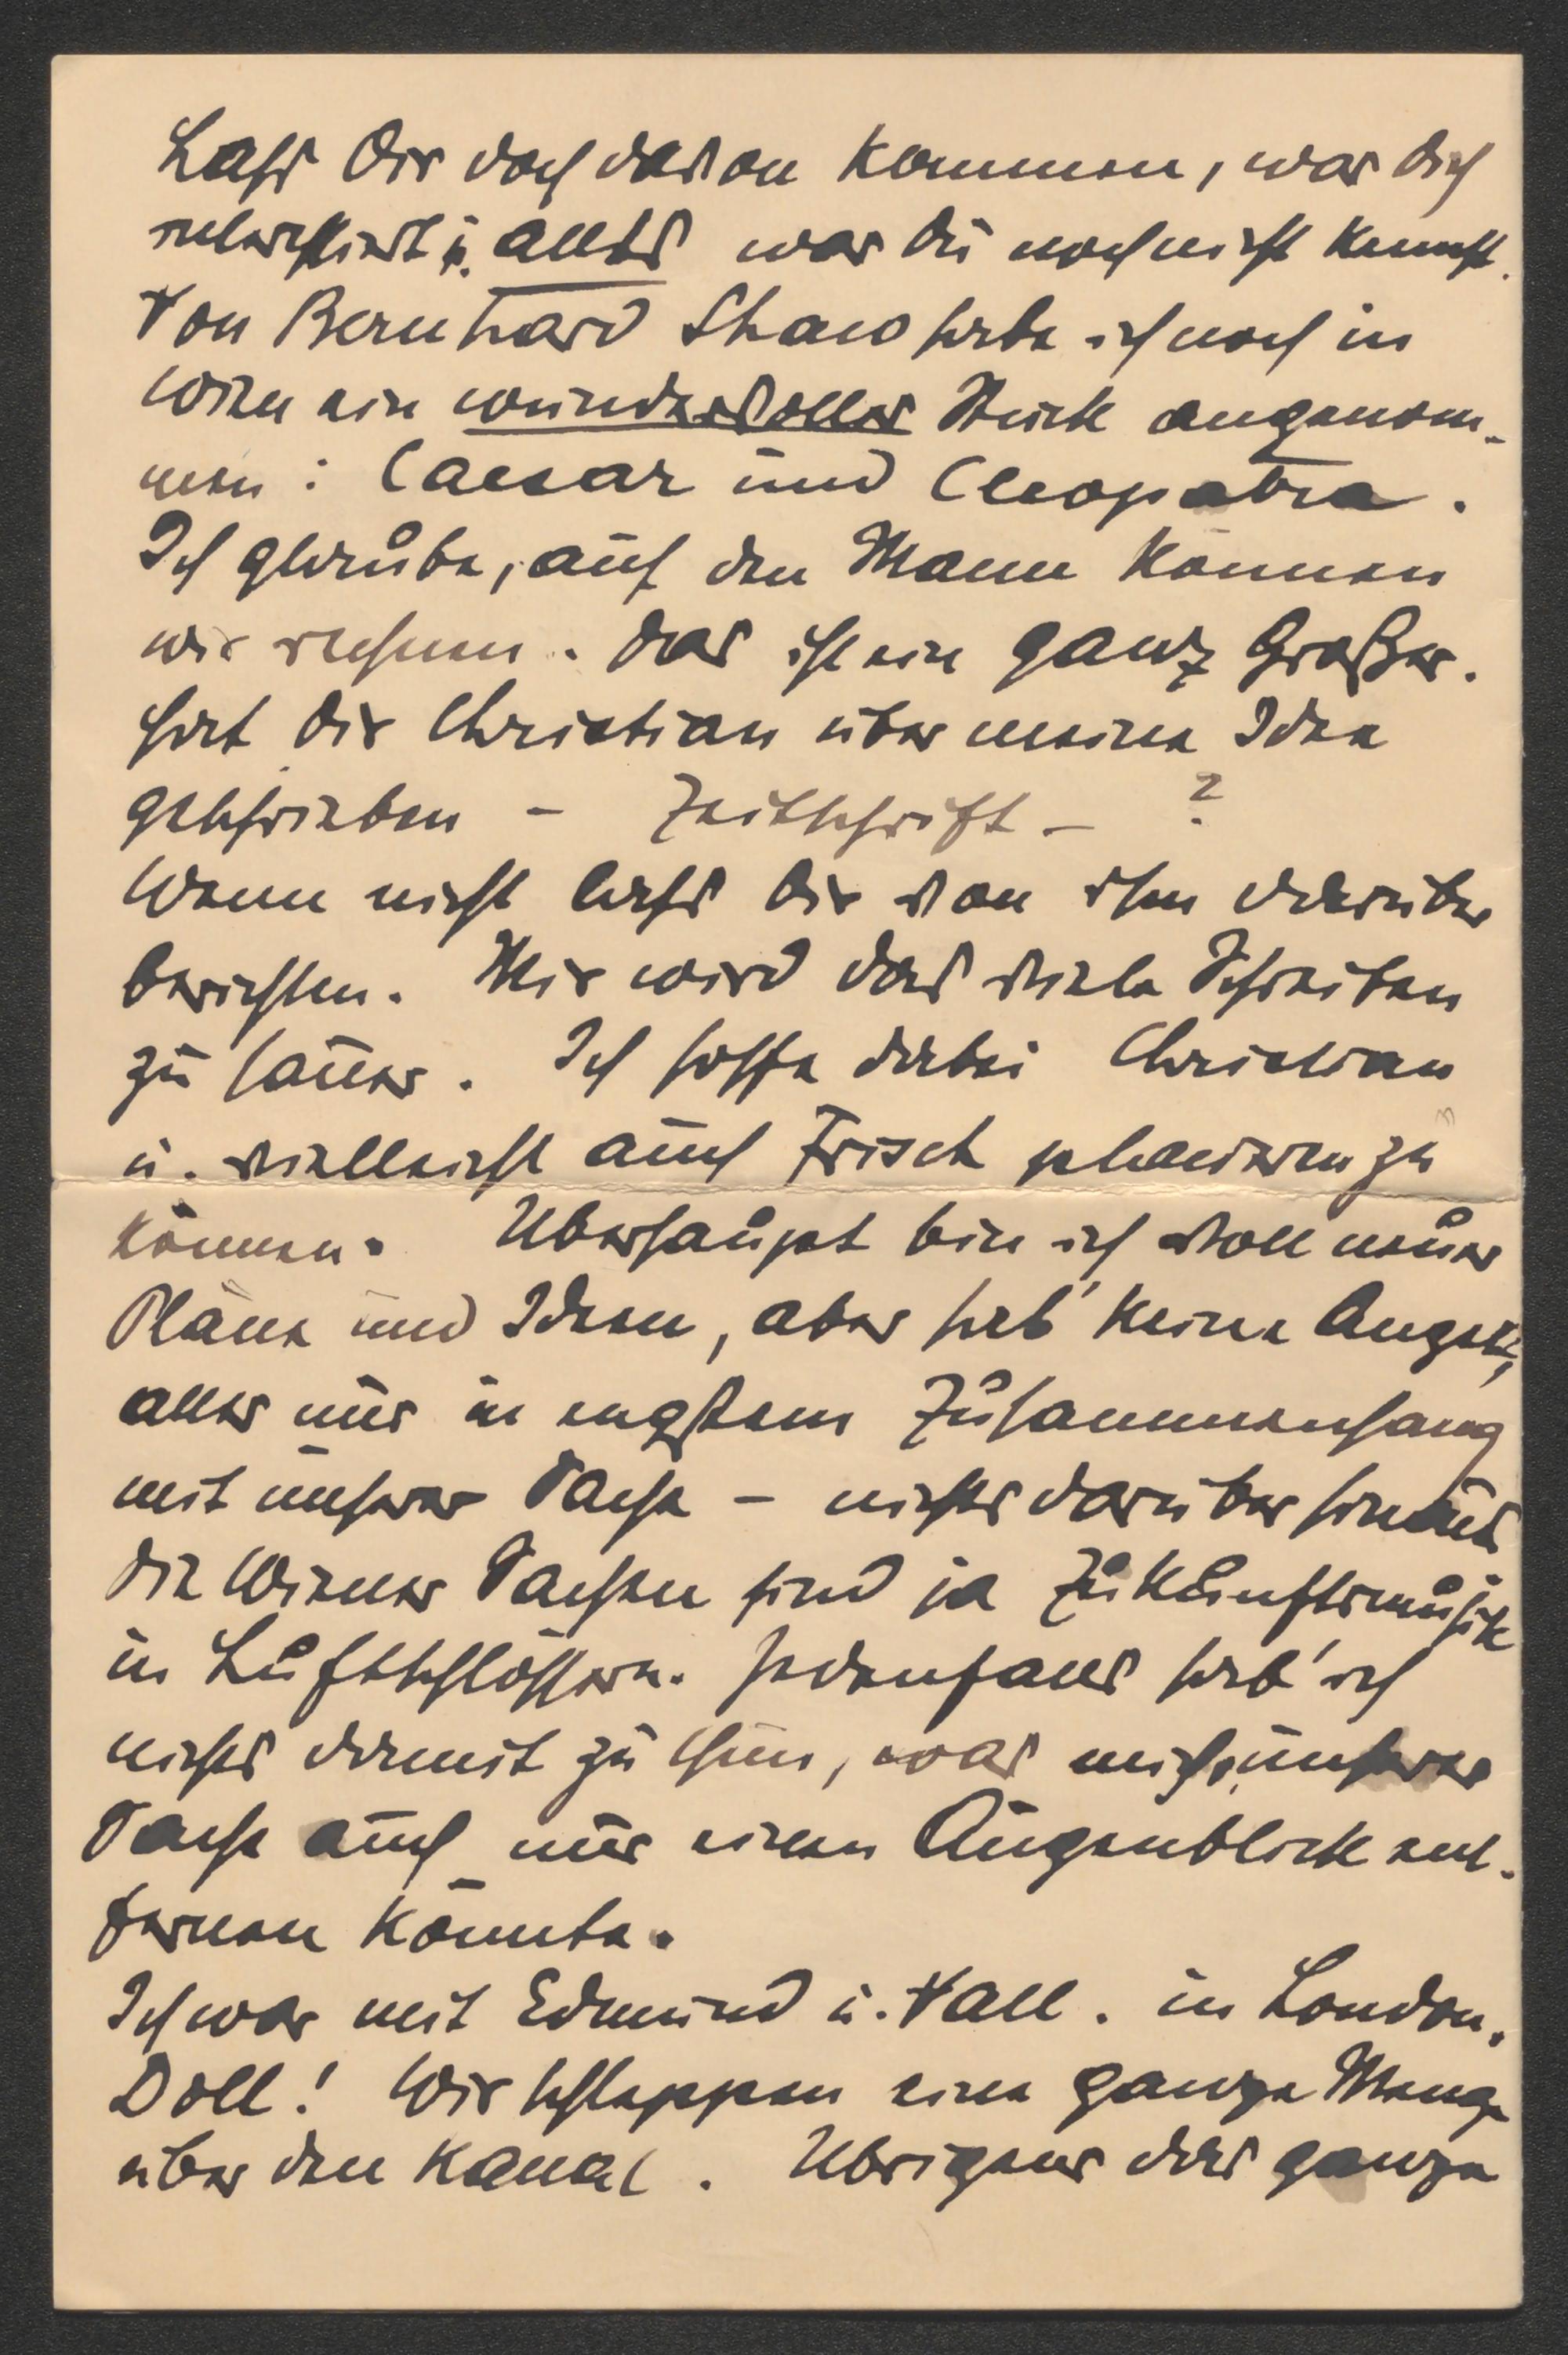 Lass Dir doch davon kommen, was dich
interessiert u. alles was Du noch nicht kennst.
Von Bernhard Shaw habe ich noch in
Wien ein wundervolles Stück angenom-
men: Caesar und Cleopatra.
Ich glaube, auf den Mann können
wir rechnen. Das ist ein ganz Großer.
Hat Dir Christian über meine Idee
geschrieben – Zeitschrift – ?
Wenn nicht lass Dir von ihm darüber
berichten. Mir wird das viele Schreiben
zu sauer. Ich hoffe dabei Christian
u. vielleicht auch Frisch placieren zu
können. Überhaupt bin ich voll neuer
Pläne und Ideen, aber hab' keine Angst,
alles nur in engstem Zusammenhang
mit unserer Sache – nichts darüber hinaus
Die Wiener Sachen sind ja Zukunftsmusik
in Luftschlössern. Jedenfalls hab' ich
nichts damit zu thun, was mich unserer
Sache auch nur einen Augenblick ent-
fernen könnte.
Ich war mit Edmund u. Vall. in London.
Doll! Wir schleppen eine ganze Menge
über den Kanal. Übrigens das ganze